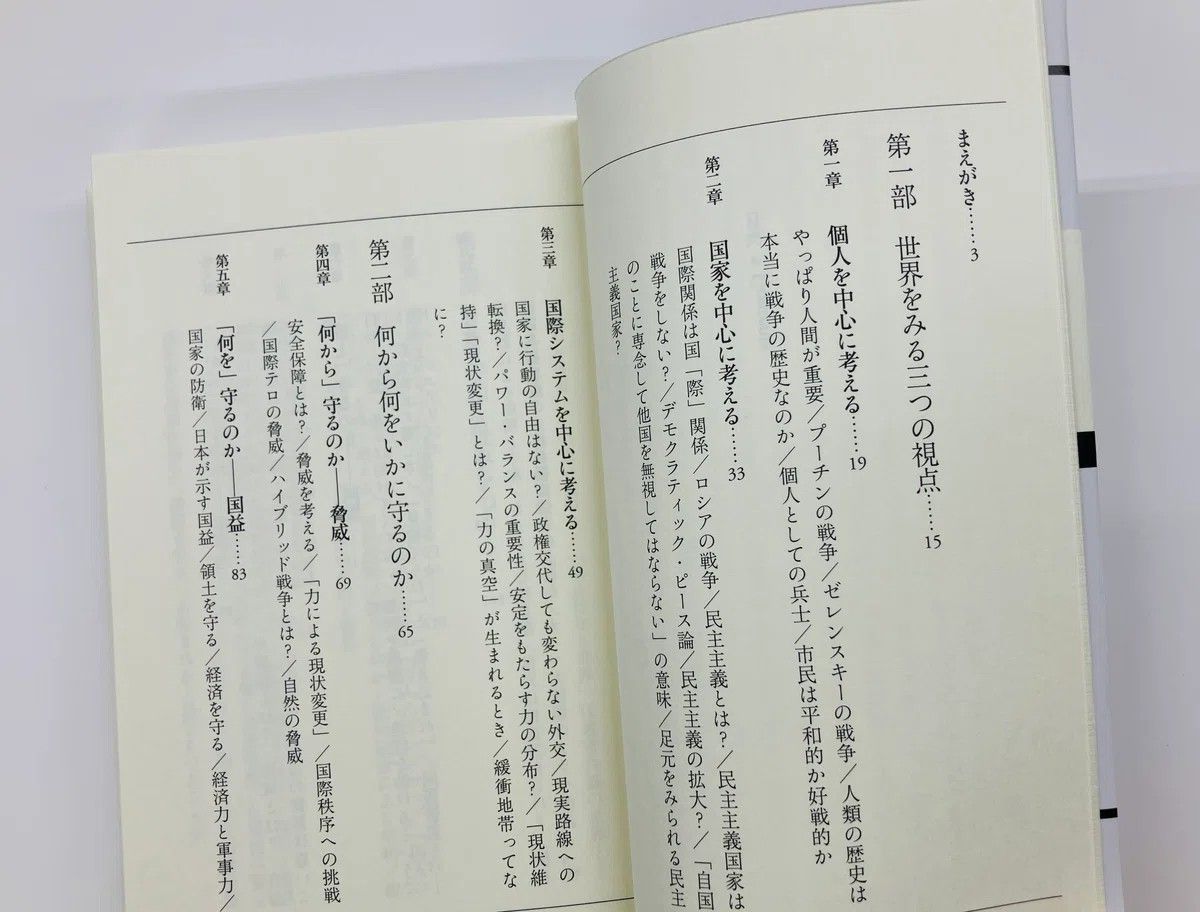 まえがき……3
第一部　世界をみる三つの視点……15
第一章　個人を中心に考える……19
やっぱり人間が重要／プーチンの戦争／ゼレンスキーの戦争／人類の歴史は
本当に戦争の歴史なのか／個人としての兵士／市民は平和的か好戦的か
第二章　国家を中心に考える……33
国際関係は国「際」関係／ロシアの戦争／民主主義とは？／民主主義国家は
戦争をしない？／デモクラティック・ピース論／民主主義の拡大？／「自国
のことに専念して他国を無視してはならない」の意味／足元をみられる民主
主義国家？
第三章　国際システムを中心に考える……49
国家に行動の自由はない？／政権交代しても変わらない外交／現実路線への
転換？／パワー・バランスの重要性／安定をもたらす力の分布？／「現状維
持」「現状変更」とは？／「力の真空」が生まれるとき／緩衝地帯ってな
に？
第二部　何から何をいかに守るのか……65
第四章　「何から」守るのか――脅威……69
安全保障とは？／脅威を考える／「力による現状変更」／国際秩序への挑戦
／国際テロの脅威／ハイブリッド戦争とは？／自然の脅威
第五章　「何を」守るのか――国益……83
国家の防衛／日本が示す国益／領土を守る／経済を守る／経済力と軍事力／